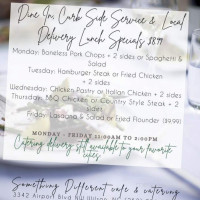 Dine In, Curb Side Service & Local
Delivery Lunch Specials $8.99
Monday: Boneless Pork Chops + 2 sides or Spaghetti &
Salad
Tuesday: Hamburger Steak or Fried Chicken
+ 2 sides
Wednesday: Chicken Pastry or Italian Chicken + 2 sides
Thursday: BBQ Chicken or Country Style Steak + 2
sides
Friday: Lasagna & Salad or Fried Flounder ($9.99)
MONDAY - FRIDAY 11:00AM TO 2:00PM
Catering delivery still available to your favorite
Something Different cafe & catering
3342 Airport Blvd